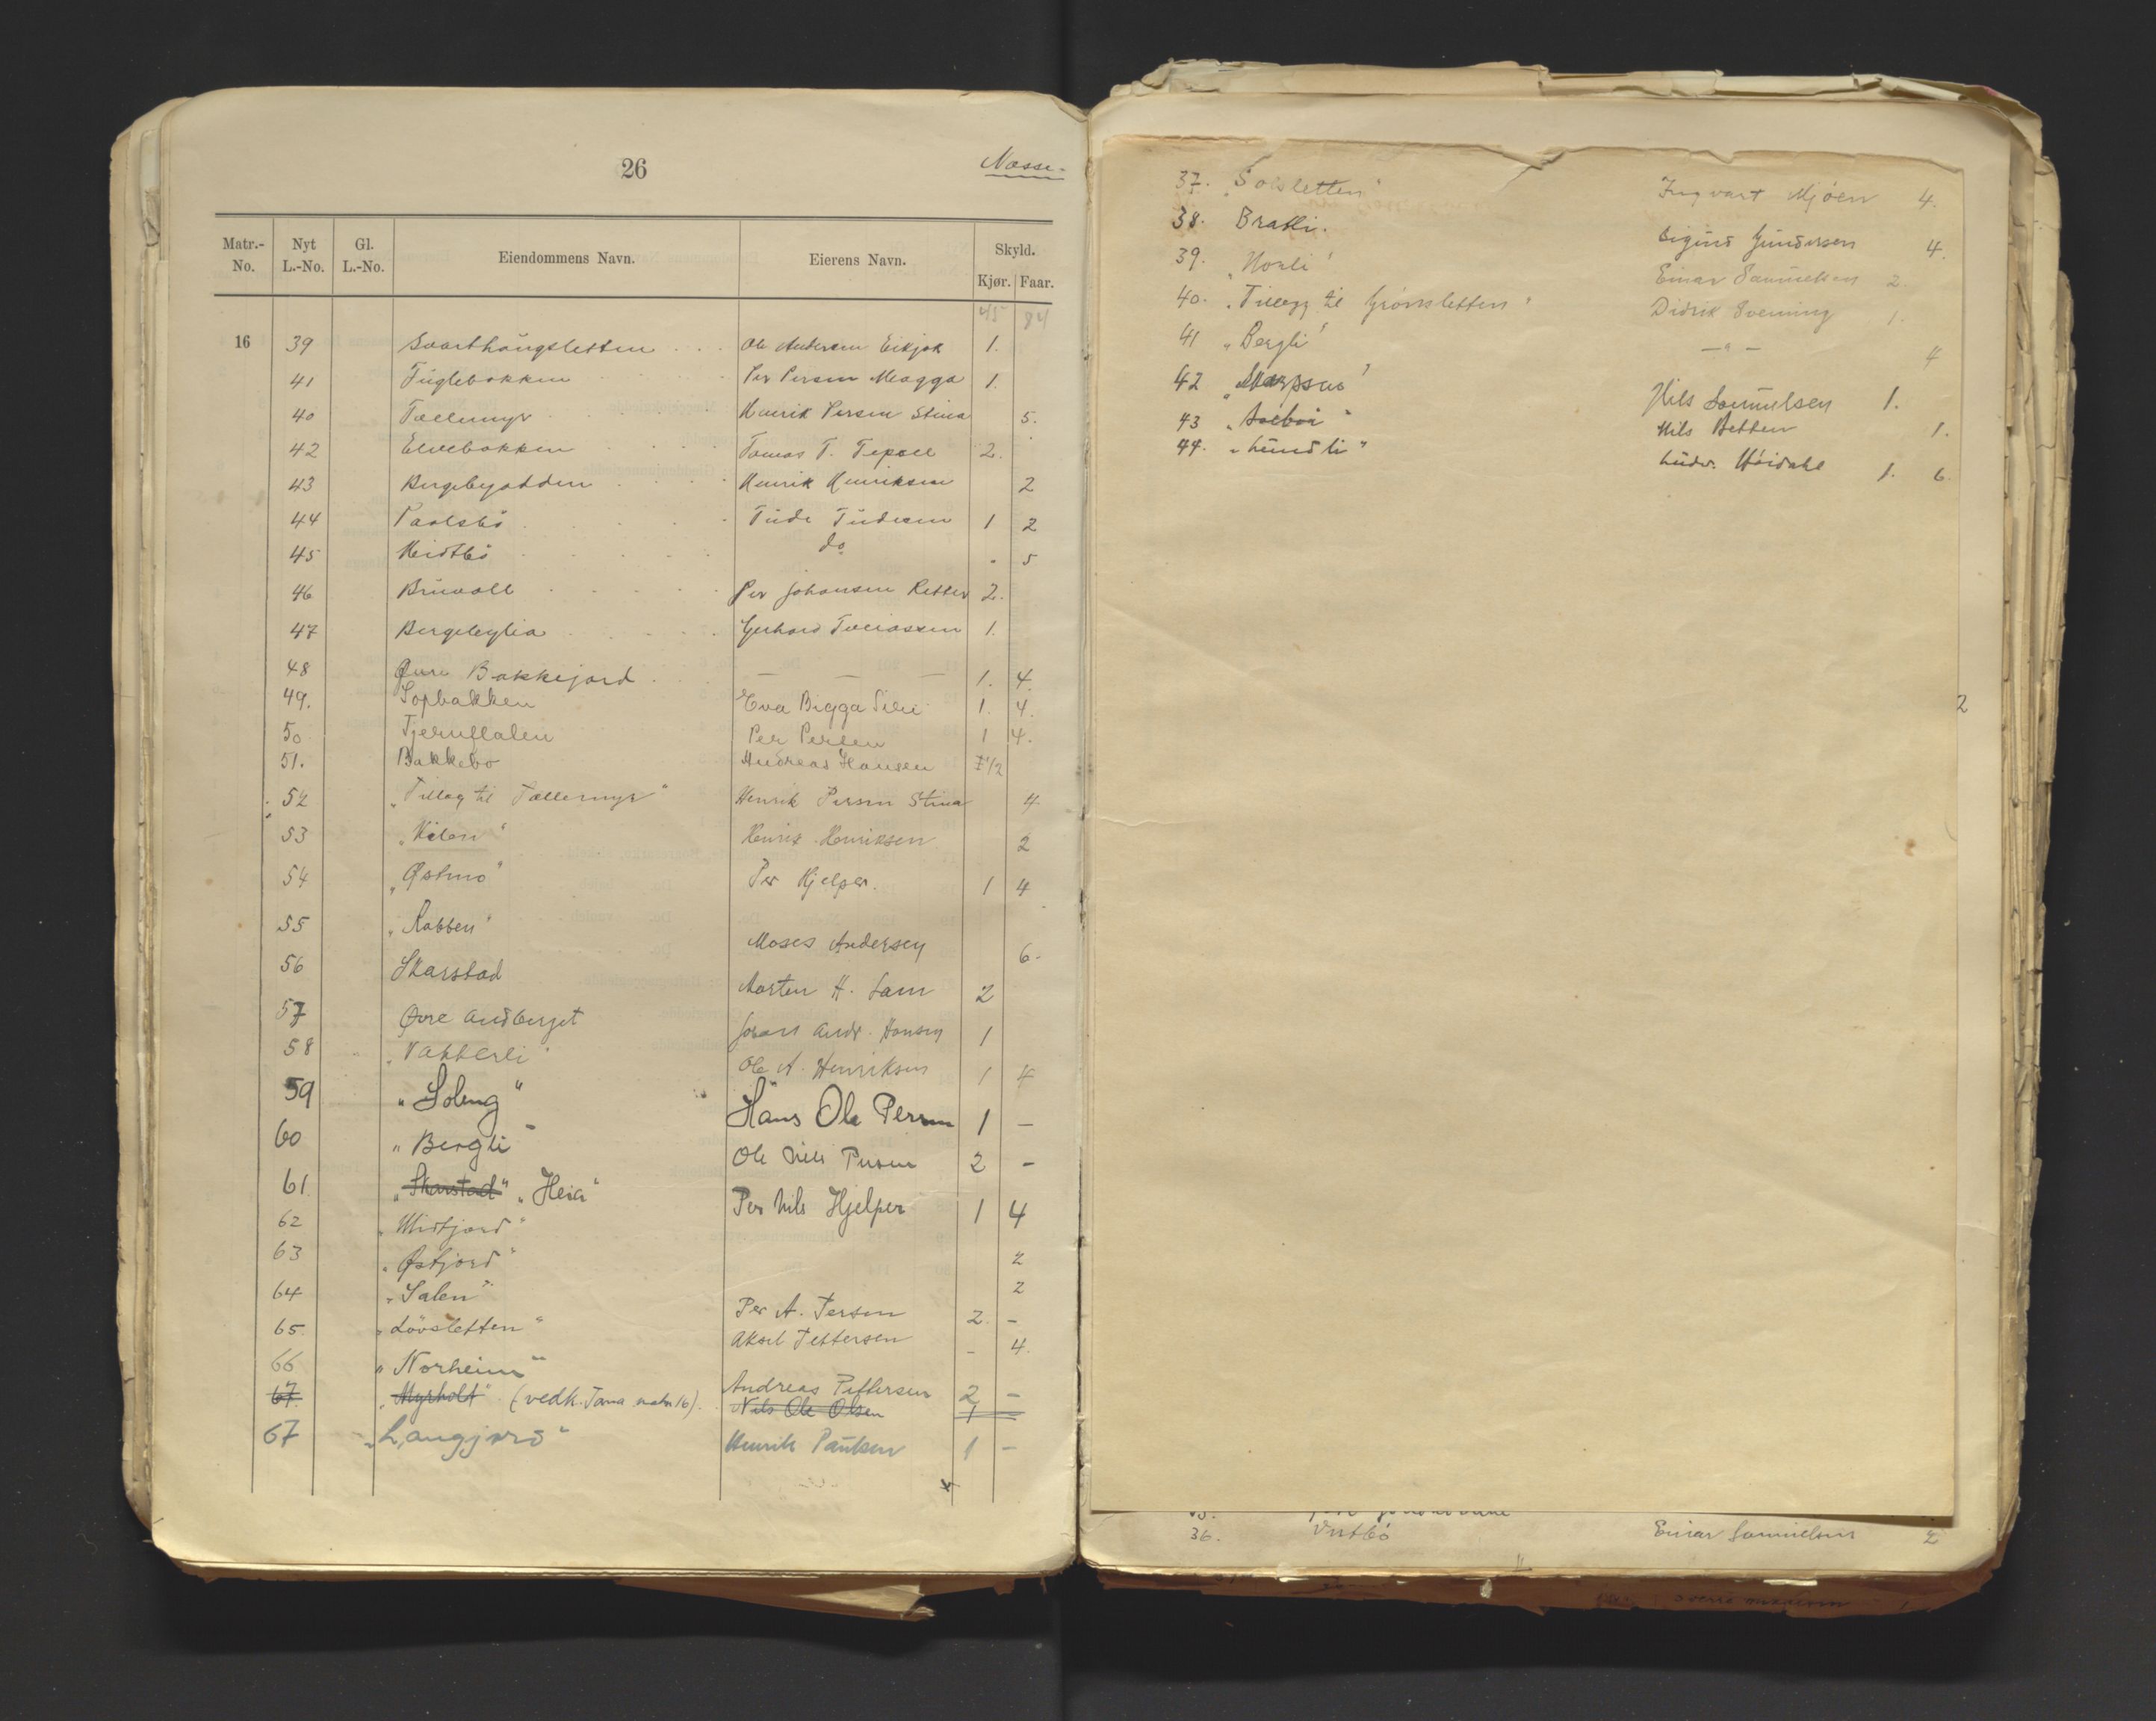 26
Nesse-
Matr.-No. Nyt L.-No. Gl. L.-No. Eiendommens Navn. Eierens Navn. Skyld. Kjør. Faar.
45 84
16 39 Svarthaugsletten Ole Andersen Eikjok 1.
41 Fuglebakken Per Persen Magga 1.
40 Tællemyr Henrik Persen Stina 5.
42 Elvebakken Tomas T. 2.
43 Bergebyodden Henrik Henriksen 2
44 Paalsbö Tude Tudesen 1 2
45 Heidtbö do - 5
46 Bruvoll Per Johansen Retter 2.
47 Bergebylia Gerhard 1.
48 Øvre Bakkejord — — — 1. 4.
49. Sopbakken Eva Bigga 1. 4.
50 Per Persen 1 4.
51. Bakkebo Andreas Hansen 1/2
52 "Tillæg til Tællemyr" Henrik Persen Stina 4
53 "Kilen" Henrik Henriksen 2
54 "Østmo" Per Hjelper. 1 4
55 "Rabben" Moses Andersen 6.
56 Skarstad Morten H. Sam 2
57 Øvre Andberget Johan Andr. Hansen 1
58 "Vakkerli" Ole A. Henriksen 1 4
59 "Soleng" Hans Ole Persen 1 —
60 "Bergli" Ole Nils Persen 2 -
61 "Skarstad" "Heia" Per Nils Hjelper 1 4
62 "Midtjord" 2
63 "Østjord" 2
64 "Salen" Per A. Persen 2. -
65. "Lövsletten" Aksel Pettersen - 4.
66 "Norheim" Andreas Pettersen 2 -
67. "Myrholt" (vedk. Tana matr 16). Nils Ole Olsen 1
67 "Langjord" Henrik Paulsen 1 -
37. "Solsletten" Ingvart Mjöen 4.
38. Bratli. Sigurd Gundersen 4.
39. "Norli" Einar Samuelsen 2.
40. "Tillegg til Grönsletten" Didrik Svenning 1.
41 "Bergli" — " — 4
42 "Skarpsno" Nils Samuelsen 1.
43 "Solboi" Nils Betten 1.
44. "Lundli" Ludv. Höidahl 1. 6.
2
36. Vestbö Einar Samuelsen 2